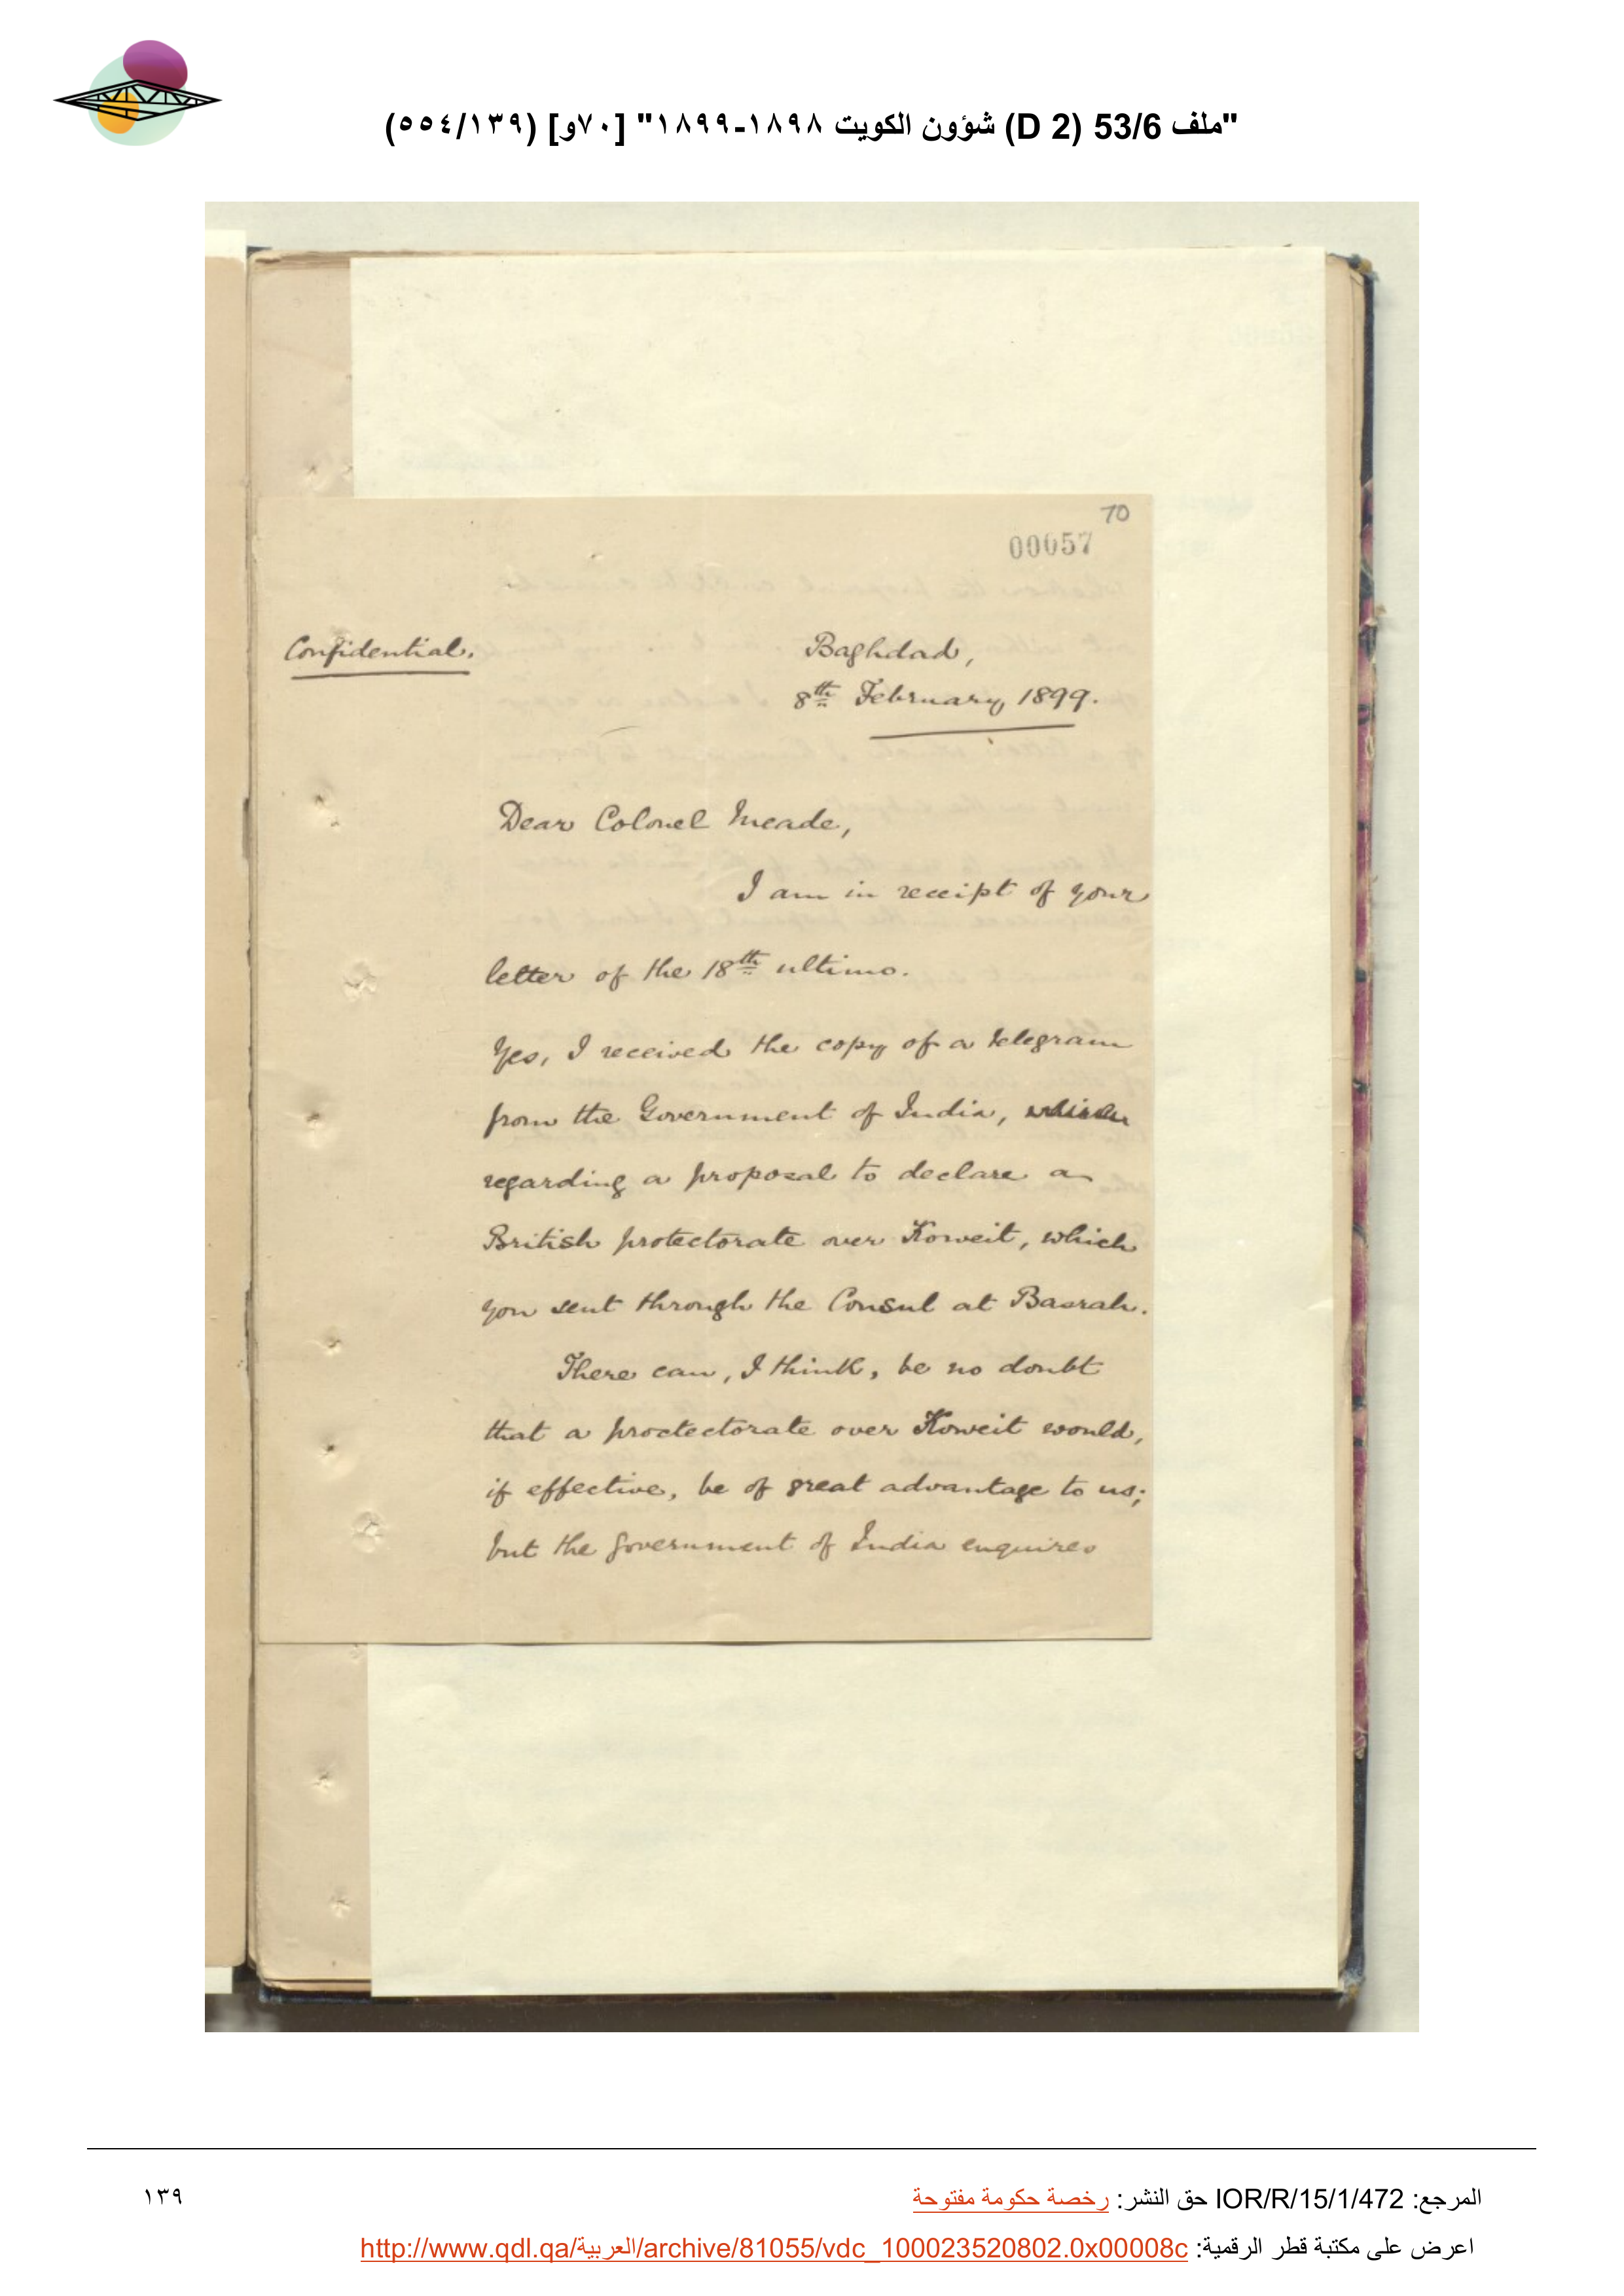 "ملف 53/6 (D 2) شؤون الكويت ١٨٩٨-١٨٩٩" [٧٠و] (٥٥٤/١٣٩)
70
00057
Confidential.
Baghdad,
8th February, 1899.
Dear Colonel Meade,
I am in receipt of your
letter of the 18th ultimo.
Yes, I received the copy of a telegram
from the Government of India, which
regarding a proposal to declare a
British protectorate over Koweit, which
you sent through the Consul at Basrah.
There can, I think, be no doubt
that a proctectorate over Koweit would,
if effective, be of great advantage to us;
but the Government of India enquires
المرجع: IOR/R/15/1/472 حق النشر: رخصة حكومة مفتوحة
١٣٩
اعرض على مكتبة قطر الرقمية: http://www.qdl.qa/العربية/archive/81055/vdc_100023520802.0x00008c